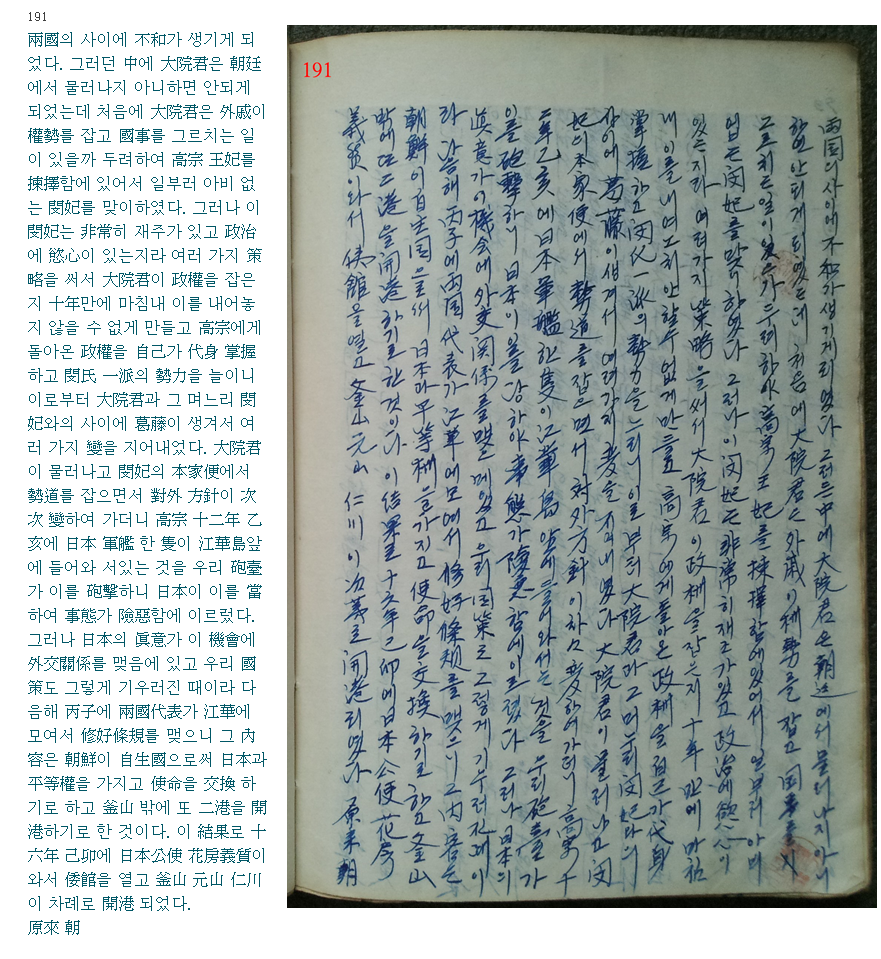 191
兩國의 사이에 不和가 생기게 되
었다. 그러던 中에 大院君은 朝廷
에서 물러나지 아니하면 안되게
되었는데 처음에 大院君은 外戚이
權勢를 잡고 國事를 그르치는 일
이 있을까 두려하여 高宗 王妃를
揀擇함에 있어서 일부러 아비 없
는 閔妃를 맞이하였다. 그러나 이
閔妃는 非常히 재주가 있고 政治
에 慾心이 있는지라 여러 가지 策
略을 써서 大院君이 政權을 잡은
지 十年만에 마침내 이를 내어놓
지 않을 수 없게 만들고 高宗에게
돌아온 政權을 自己가 代身 掌握
하고 閔氏 一派의 勢力을 늘이니
이로부터 大院君과 그 며느리 閔
妃와의 사이에 葛藤이 생겨서 여
러 가지 變을 지어내었다. 大院君
이 물러나고 閔妃의 本家便에서
勢道를 잡으면서 對外 方針이 次
次 變하여 가더니 高宗 十二年 乙
亥에 日本 軍艦 한 隻이 江華島앞
에 들어와 서있는 것을 우리 砲臺
가 이를 砲擊하니 日本이 이를 當
하여 事態가 險惡함에 이르렀다.
그러나 日本의 眞意가 이 機會에
外交關係를 맺음에 있고 우리 國
策도 그렇게 기우러진 때이라 다
음해 丙子에 兩國代表가 江華에
모여서 修好條規를 맺으니 그 內
容은 朝鮮이 自生國으로써 日本과
平等權을 가지고 使命을 交換 하
기로 하고 釜山 밖에 또 二港을 開
港하기로 한 것이다. 이 結果로 十
六年 己卯에 日本公使 花房義質이
와서 倭館을 열고 釜山 元山 仁川
이 차례로 開港 되었다.
原來 朝
191
両国의 사이에 不和가 생기게 되엿다 그러든 中에 大院君은 朝廷에서 물러나지 아니
하면 안되게 되엿는데 처음에 大院君은 外戚이 権勢를 잡고 国事를 그
르치는 일이 있을가 두려하야 高宗 王妃를 揀擇함에 있어서 일부러 아비
업는 閔妃를 맞이하엿다 그러나 이 閔妃는 非常히 재조가 있고 政治에 慾心이
있는지라 여러가지 策略을 써서 大院君이 政権을 잡은지 十年만에 마침
내 이를 내여노치 안할수 없게 만들고 高宗에게 돌아온 政権을 自己가 代身
掌握하고 閔氏 一派의 勢力을 느리니 이로부터 大院君과 그 며누리 閔妃와의
사이에 葛藤이 생겨서 여러가지 変을 지어내엿다 大院君이 물러나고 閔
妃의 本家便에서 勢道를 잡으면서 対外方針이 次次 変하여가더니 高宗 十
二年 乙亥에 日本 軍艦 한 隻이 江華島 앞에 들어와서는 것을 우리 砲臺가
이를 砲擊하니 日本이 이를 當하야 事態가 險惡함에 이르렀다 그러나 日本의
眞意가 이 機会에 外交関係를 맺음에 있고 우리 国策도 그렇게 기우러진때이
라 다음해 丙子에 両国代表가 江華에 모여서 修好條規를 맺으니 그 內容은
朝鮮이 自主国으로써 日本과 平等権을 가지고 使命을 交換하기로 하고 釜山
밖에 또 二港을 開港하기로 한 것이다 이 結果로 十六年 己卯에 日本公使 花房
義質이 와서 倭館을 열고 釜山 元山 仁川이 次第로 開港되엿다 原来 朝